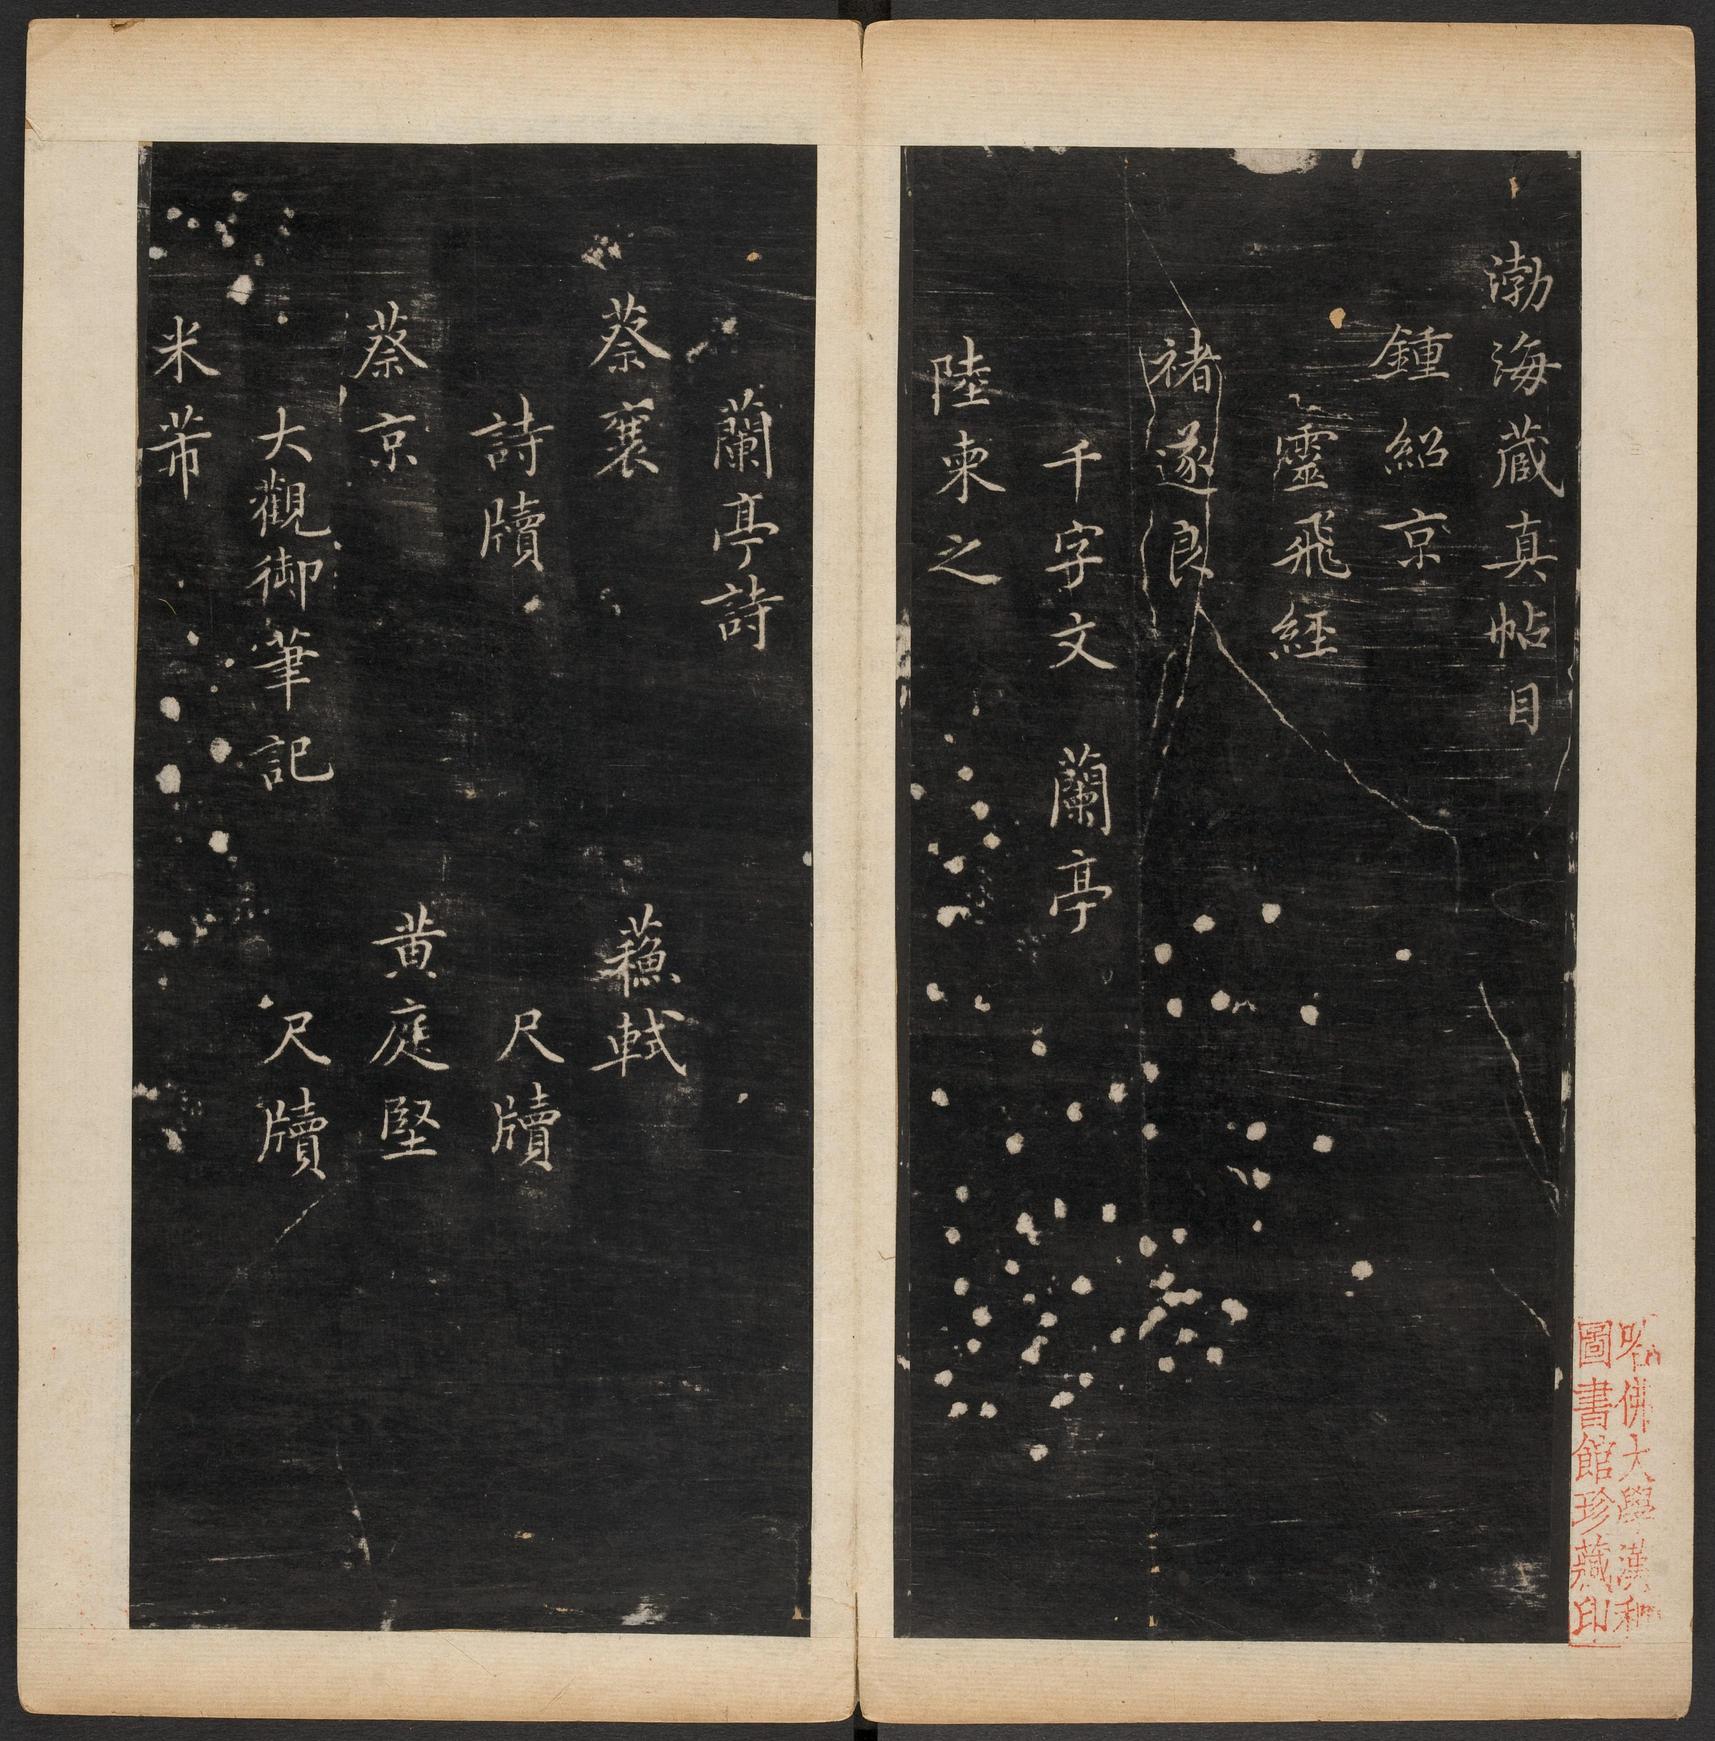 渤海藏真帖目
鍾紹京
靈飛經
褚遂良
千字文 蘭亭
陸柬之
蘭亭詩
蔡襄 蘓軾
詩牘 尺牘
蔡京 黄庭堅
大觀御筆記 尺牘
米芾
哈佛大學漢和
圖書館珍藏印